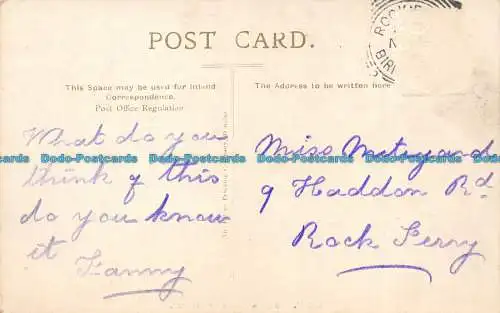 POST CARD.
This Space may be used for Inland
Correspondence.
Post Office Regulation
The Address to be written here
What do you
think of this
do you know
it Fanny
Miss
9 Haddon Rd
Rock Ferry
Dodo-Postcards Dodo-Postcards Dodo-Postcards Dodo-Postcards Dodo-Postcards